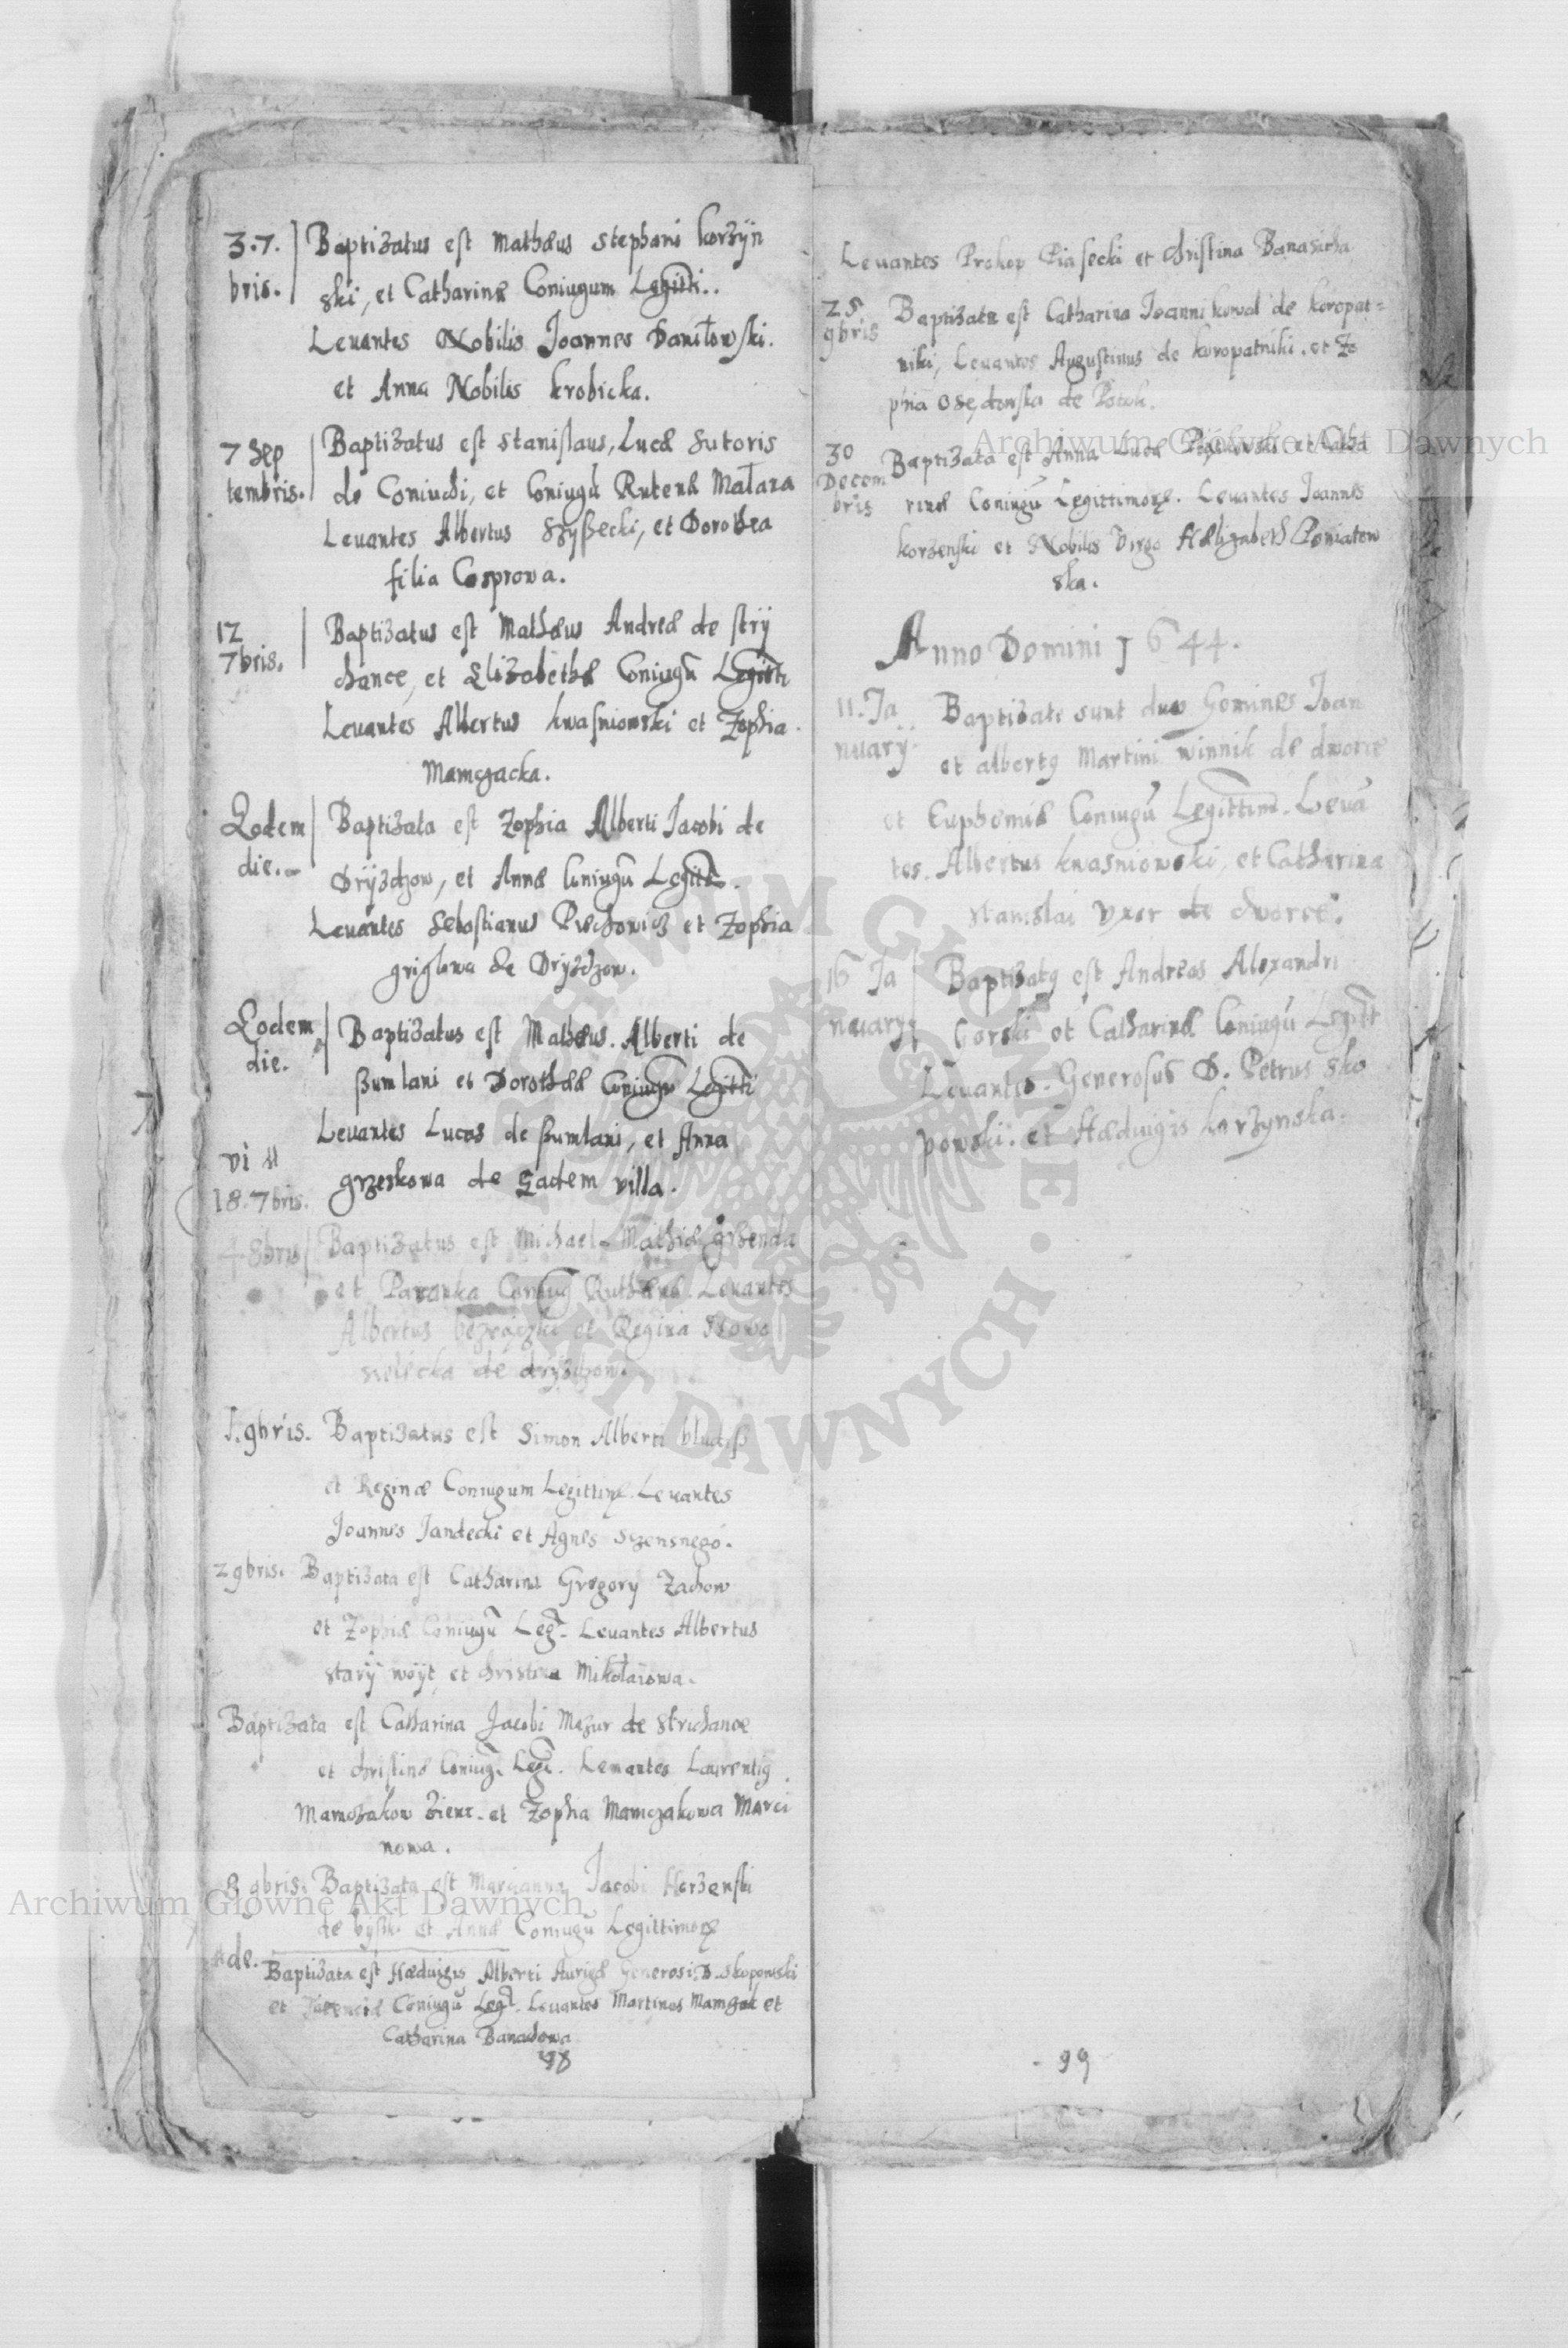 3. 7.
bris.
Baptizatus est Mathæus Stephani Korzÿn
ski, et Catharinæ Coniugum Legitti..
Leuantes Nobilis Joannes Daniłowski.
et Anna Nobilis Krobicka.
7 Sep
tembris.
Baptizatus est Stanislaus, Lucæ Sutoris
de Coniuchi, et Coniugũ Rutenæ Małara
Leuantes Albertus Szyßecki, et Dorothea
filia Cosprowa.
12
7bris.
Baptizatus est Mathæus Andreæ de strÿ
chance, et Elizabethæ Coniugũ Legitti
Leuantes Albertus Kwasniowski et Zophia
Mamczacka.
Eodem
die.
Baptizata est Zophia Alberti Jacobi de
Drÿzdzow, et Annæ Coniugũ Legitt.
Leuantes Sebastianus et Zophia
griglowa de Drÿzdzow.
Eodem
die.
Baptizatus est Mathæus Alberti de
ßumlani et Dorotheæ Coniugũ Legitti
Leuantes Lucas de ßumlani, et Anna
grzeskowa de Eadem villa.
18. 7bris.
4 8bris
Baptizatus est Michael Mathiæ grzenda
et Paranka Coniug Ruthænæ. Leuantes
Albertus et Regina
de drÿzdzow.
1. 9bris. Baptizatus est Simon Alberti
et Reginæ Coniugum Legittimę. Leuantes
Joannes Jandecki et Agnes Szensnego.
2 9bris. Baptizata est Catharina Gregory Zachow
et Zophiæ Coniugũ Leg. Leuantes Albertus
starÿ woÿt, et Christina Mikołaiowa.
Baptizata est Catharina Jacobi Mazur de Strichance
et Christinæ Coniug. Legi. Leuantes Laurentiq
Mamczakow Zienc. et Zophia Mamczakowa Marci
nowa.
8 9bris. Baptizata est Marianna Jacobi Herzenski
de et Annæ Coniugũ Legittimorę
Baptizata est Hæduigis Alberti Aurigæ Generosi D. Skopowski
et Coniugũ Legt. Leuantes Martinus Mamzak et
Catharina Banachowa
98
Leuantes Prokop Piasecki et Christina Banasicha
25
9bris
Baptizata est Catharina Joanni kowal de koropat=
niki, Leuantes Augustinus de koropatniki. et Zo
phia de Potok.
30
Decem
bris
Baptizata est Anna Lucæ et Catha
rinæ Coniugũ Legittimorę. Leuantes Joannes
korzenski et Nobilis Virgo Hælizabeth Poniatow
ska.
Anno Domini 1644.
11. Ja
nuarÿ.
Baptizati sunt duo Gemines Joan
et albertq Martini winnik de dworce
et Euphemiæ Coniugũ Legittim. Leuã
tes. Albertus kwasniowski, et Catharina
stanislai Vxor de dworce.
16 Ja
nuary
Baptizatq est Andreas Alexandri
Gorski et Catharinæ Coniugũ Legitt
Leuantes. Generosus D. Petrus Sko
powski. et Hæduigis karzynska.
99
Archiwum Główne Akt Dawnych
Archiwum Główne Akt Dawnych
ARCHIWUM GŁÓWNE. AKT DAWNYCH.